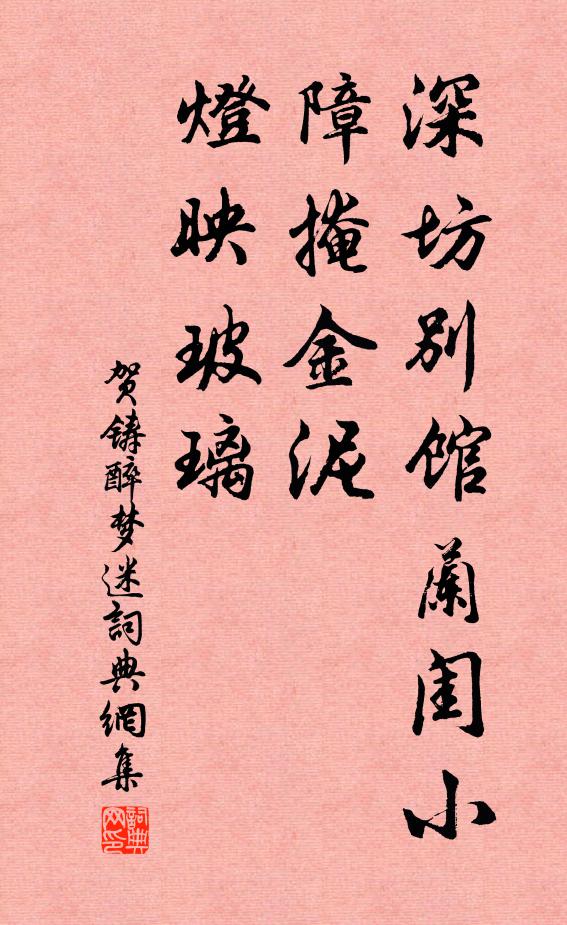 深坊别馆蘭闺小
障掩金泥
燈映玻璃
贺鋳醉梦迷詞典網集
詞典网印